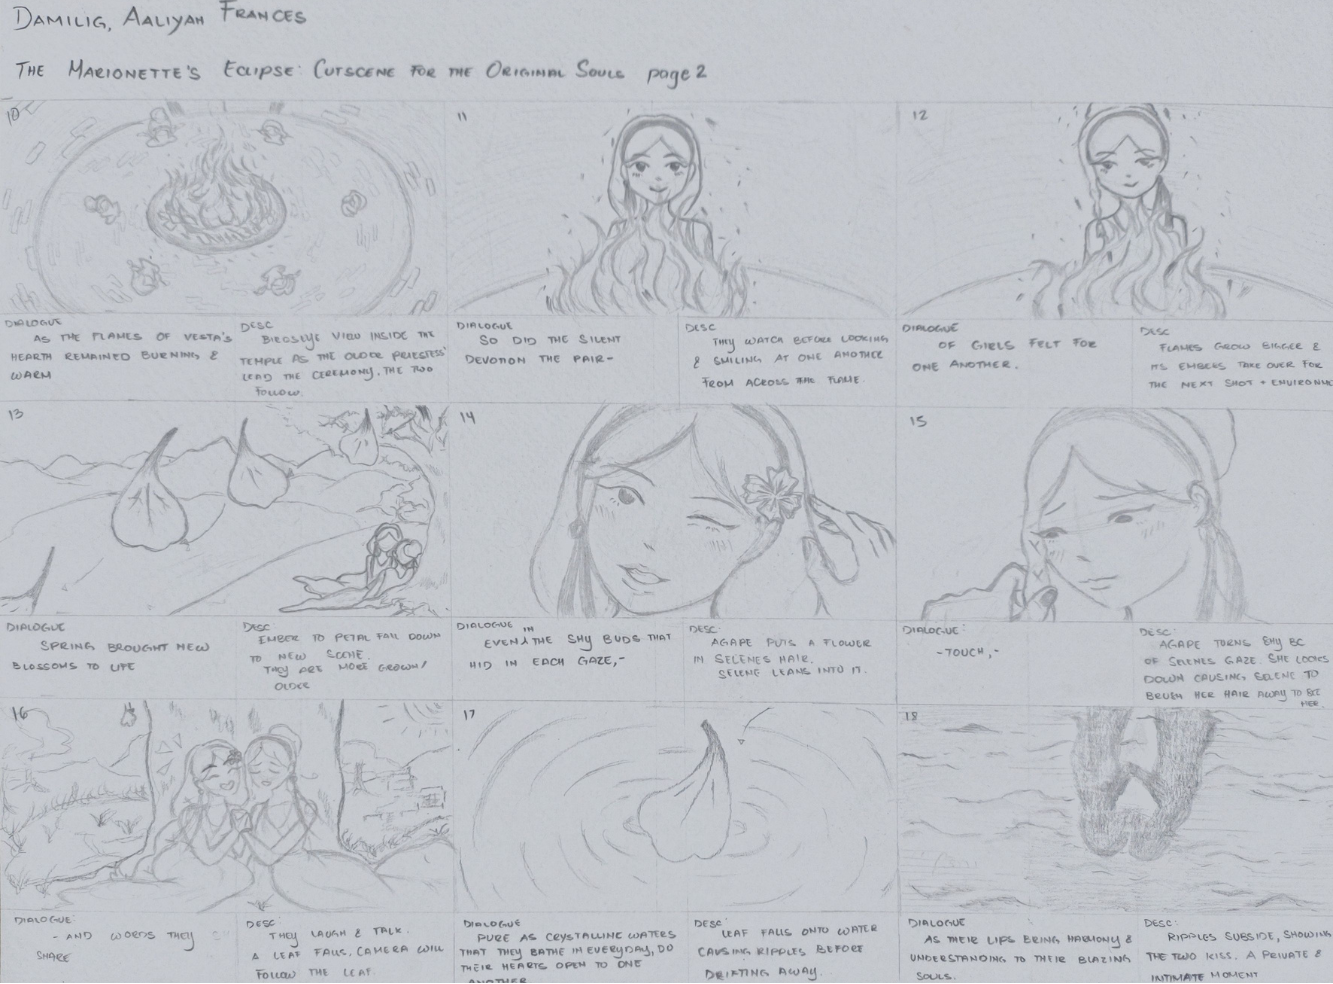 DAMILIG, AALIYAH FRANCES
THE MARIONETTE'S ECLIPSE: CUTSCENE FOR THE ORIGINAL SOULS page 2
10
DIALOGUE
AS THE FLAMES OF VESTA'S
HEARTH REMAINED BURNING &
WARM
DESC
BIRDSEYE VIEW INSIDE THE
TEMPLE AS THE OLDER PRIESTESS'
LEAD THE CEREMONY. THE TWO
FOLLOW.
11
DIALOGUE
SO DID THE SILENT
DEVOTION THE PAIR-
DESC
THEY WATCH BEFORE LOOKING
& SMILING AT ONE ANOTHER
FROM ACROSS THE FLAME.
12
DIALOGUE
OF GIRLS FELT FOR
ONE ANOTHER.
DESC
FLAMES GROW BIGGER &
ITS EMBERS TAKE OVER FOR
THE NEXT SHOT + ENVIRONM
13
DIALOGUE
SPRING BROUGHT NEW
BLOSSOMS TO LIFE
DESC:
EMBER TO PETAL FALL DOWN
TO NEW SCENE.
THEY ARE MORE GROWN/
OLDER
14
DIALOGUE
EVEN IN THE SHY BUDS THAT
HID IN EACH GAZE,-
DESC:
AGAPE PUTS A FLOWER
IN SELENES HAIR.
SELENE LEANS INTO IT.
15
DIALOGUE:
-TOUCH,-
DESC:
AGAPE TURNS SHY BC
OF SELENES GAZE. SHE LOOKS
DOWN CAUSING SELENE TO
BRUSH HER HAIR AWAY TO SEE
HER.
16
DIALOGUE:
- AND WORDS THEY
SHARE
DESC:
THEY LAUGH & TALK.
A LEAF FALLS, CAMERA WILL
FOLLOW THE LEAF.
17
DIALOGUE
PURE AS CRYSTALLINE WATERS
THAT THEY BATHE IN EVERYDAY, DO
THEIR HEARTS OPEN TO ONE
ANOTHER
DESC:
LEAF FALLS ONTO WATER
CAUSING RIPPLES BEFORE
DRIFTING AWAY.
18
DIALOGUE
AS THEIR LIPS BRING HARMONY &
UNDERSTANDING TO THEIR BLAZING
SOULS.
DESC:
RIPPLES SUBSIDE, SHOWING
THE TWO KISS. A PRIVATE &
INTIMATE MOMENT